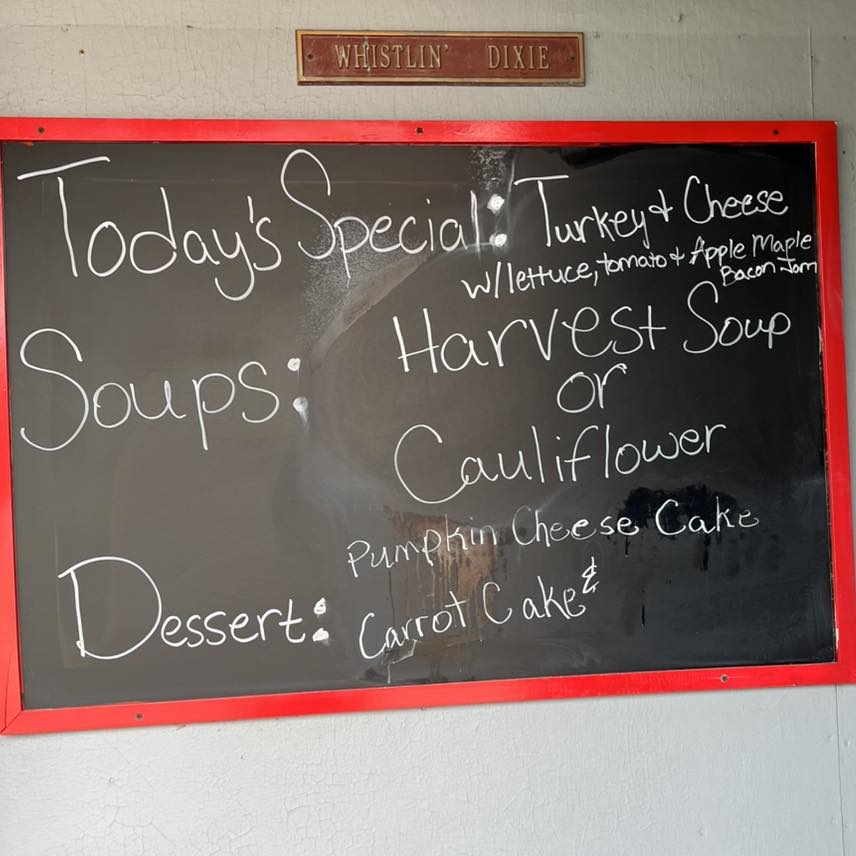 WHISTLIN' DIXIE
Today's Special: Turkey & Cheese
w/lettuce, tomato & Apple Maple
Bacon Jam
Soups: Harvest Soup
or
Cauliflower
Pumpkin Cheese Cake
&
Dessert: Carrot Cake